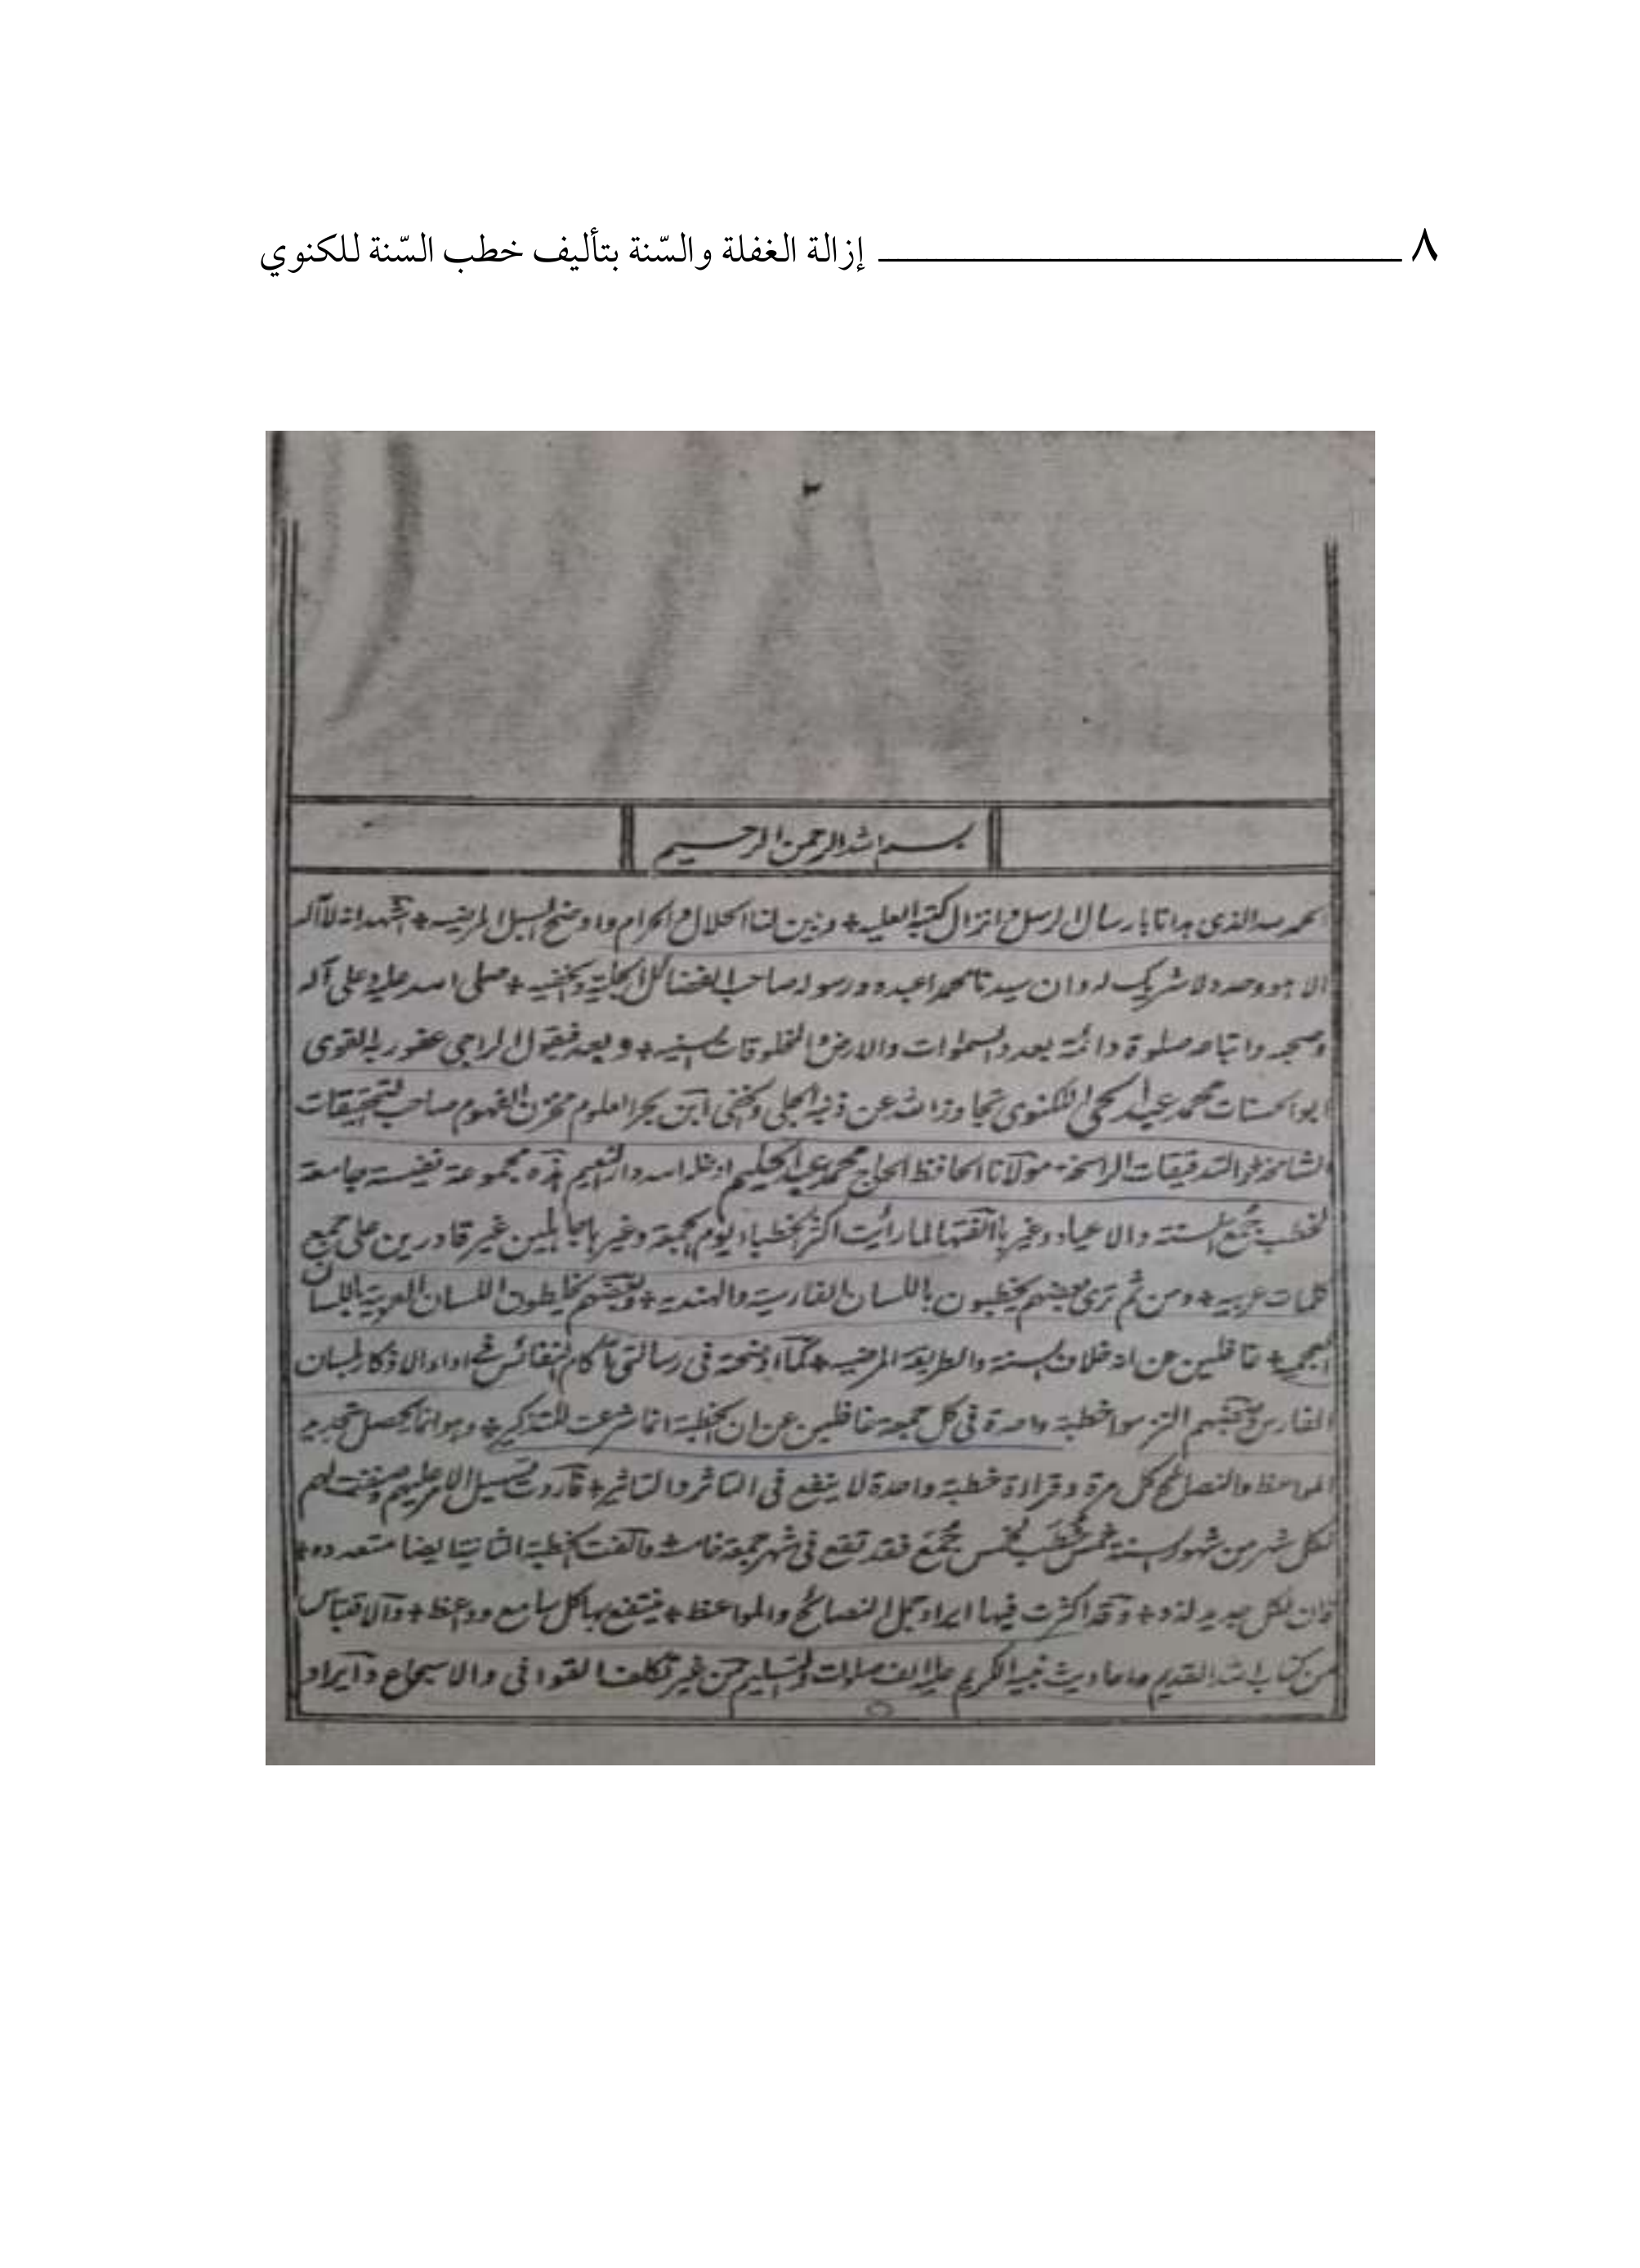 ٨ إزالة الغفلة والسّنة بتأليف خطب السّنة للكنوي
٢
بسم الله الرحمن الرحيم
الحمد لله الذی هدانا بارسال الرسل وانزال کتبه العلیه + وبین لنا الحلال والحرام واوضح السبل المرضیه + اشهد انه لا اله
الا هو وحده لا شریک له وان سیدنا محمدا عبده ورسوله صاحب الفضائل الجلیة والخفیه + صلی الله علیه وعلی آله
وصحبه واتباعه صلوة دائمة بعدد السموات والارض والمخلوقات السنیه + وبعد فیقول الراجی عفو ربه القوی
ابو الحسنات محمد عبد الحی اللکنوی تجاوز الله عن ذنبه الجلی والخفی ابن بحر العلوم مخزن الفهوم صاحب التحقیقات
الشامخة والتدقیقات الراسخة مولانا الحافظ الحاج محمد عبد الحلیم ادخله الله دار النعیم هذه مجموعة نفیسة جامعة
لخطب جمع السنة والاعیاد وغیرها الفتها لما رأیت اکثر الخطباء یوم الجمعة وغیرها جاهلین غیر قادرین علی جمع
کلمات عربیه + ومن ثم تری بعضهم یخطبون باللسان الفارسیة والهندیة + وبعضهم یخلطون اللسان العربیة باللسان
العجمیة + غافلین عن انه خلاف السنة والطریقة المرضیه + کما اوضحته فی رسالتی آکام النفائس فی اداء الاذکار بلسان
الفارس وبعضهم التزموا خطبة واحدة فی کل جمعة غافلین عن ان الخطبة انما شرعت للتذکیر + وهو انما یحصل بتجدید
المواعظ والنصائح کل مرة وقراءة خطبة واحدة لا ینفع فی التاثر والتاثیر + فاردت تسهیل الامر علیهم وصنفت لهم
لکل شهر من شهور السنة خمس خطب لخمس جمع فقد تقع فی شهر جمعة خامسة والفت الخطبة الثانیة ایضا متعدده +
فان لکل جدید لذه + وقد اکثرت فیها ایراد جمل النصائح والمواعظ + فینتفع بها کل سامع وواعظ + والاقتباس
من کتاب الله القدیم واحادیث نبیه الکریم علیه الف صلوات وتسلیم من غیر تکلف القوافی والاسجاع وایراد